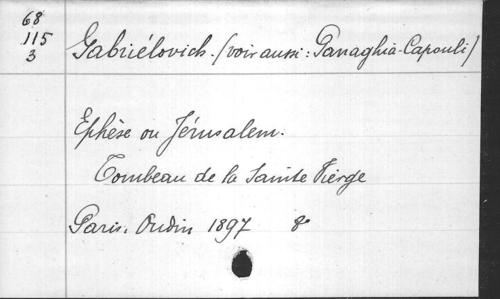 68
115
3
Gabriélovich. (voir aussi: Panaghia-Capouli)
Ephèse ou Jérusalem.
Tombeau de la Sainte Vierge
Paris. Oudin 1897 8º